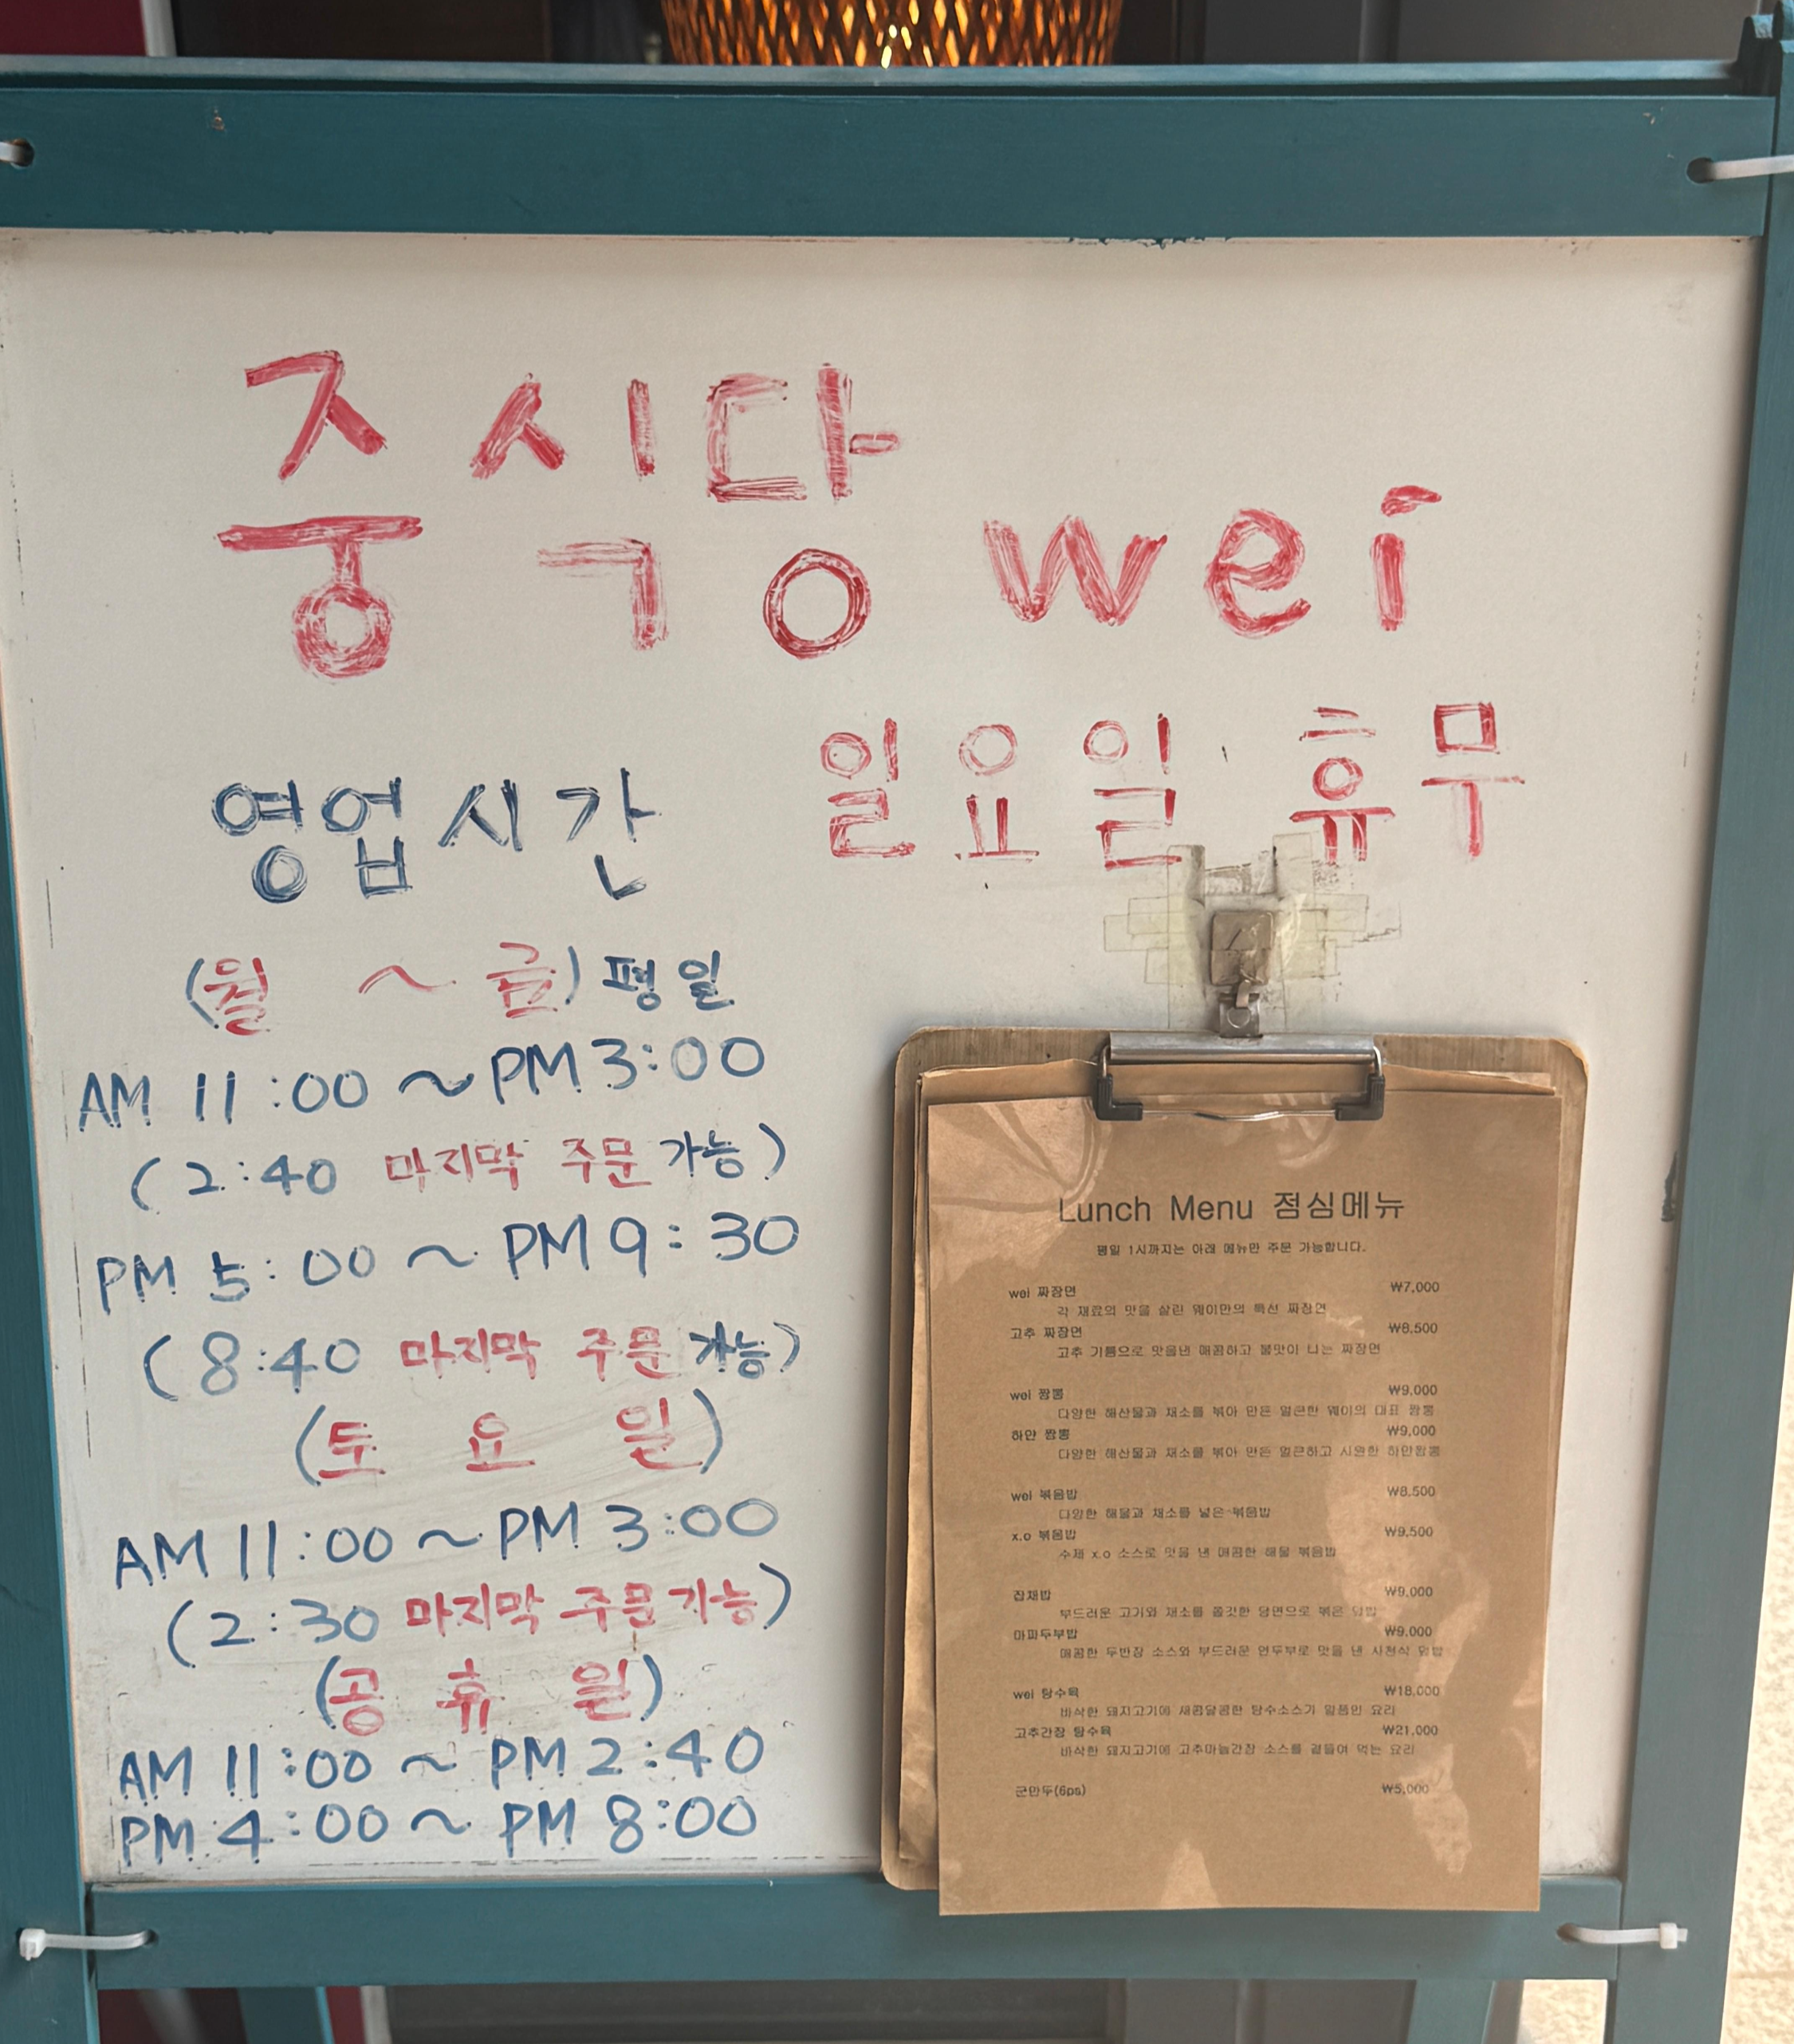 중식당 wei
일요일 휴무
영업시간
(월 ~ 금) 평일
AM 11:00 ~ PM 3:00
(2:40 마지막 주문 가능)
PM 5:00 ~ PM 9:30
(8:40 마지막 주문 가능)
(토요일)
AM 11:00 ~ PM 3:00
(2:30 마지막 주문 가능)
(공휴일)
AM 11:00 ~ PM 2:40
PM 4:00 ~ PM 8:00
Lunch Menu 점심메뉴
평일 1시까지는 아래 메뉴만 주문 가능합니다.
wei 짜장면 ₩7,000
각 재료의 맛을 살린 웨이만의 특선 짜장면
고추 짜장면 ₩8,500
고추 기름으로 맛을낸 매콤하고 불맛이 나는 짜장면
wei 짬뽕 ₩9,000
다양한 해산물과 채소를 볶아 만든 얼큰한 웨이의 대표 짬뽕
하얀 짬뽕 ₩9,000
다양한 해산물과 채소를 볶아 만든 얼큰하고 시원한 하얀짬뽕
wei 볶음밥 ₩8,500
다양한 해물과 채소를 넣은 볶음밥
x.o 볶음밥 ₩9,500
수제 x.o 소스로 맛을 낸 매콤한 해물 볶음밥
잡채밥 ₩9,000
부드러운 고기와 채소를 쫄깃한 당면으로 볶은 덮밥
마파두부밥 ₩9,000
매콤한 두반장 소스와 부드러운 연두부로 맛을 낸 사천식 덮밥
wei 탕수육 ₩18,000
바삭한 돼지고기에 새콤달콤한 탕수소스가 일품인 요리
고추간장 탕수육 ₩21,000
바삭한 돼지고기에 고추마늘간장 소스를 곁들여 먹는 요리
군만두(6ps) ₩5,000